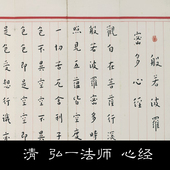 般若波羅
蜜多心經
觀自在菩薩行深
般若波羅蜜多時
照見五蘊皆空度
一切苦厄舍利子
色不異空空不異
色色即是空空即
是色受想行識
清 弘一法师 心经